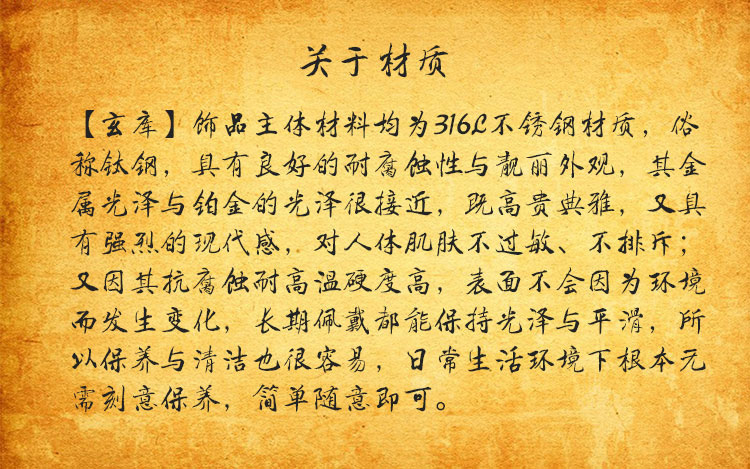 关于材质
【玄库】饰品主体材料均为316L不锈钢材质，俗
称钛钢，具有良好的耐腐蚀性与靓丽外观，其金
属光泽与铂金的光泽很接近，既高贵典雅，又具
有强烈的现代感，对人体肌肤不过敏、不排斥；
又因其抗腐蚀耐高温硬度高，表面不会因为环境
而发生变化，长期佩戴都能保持光泽与平滑，所
以保养与清洁也很容易，日常生活环境下根本元
需刻意保养，简单随意即可。